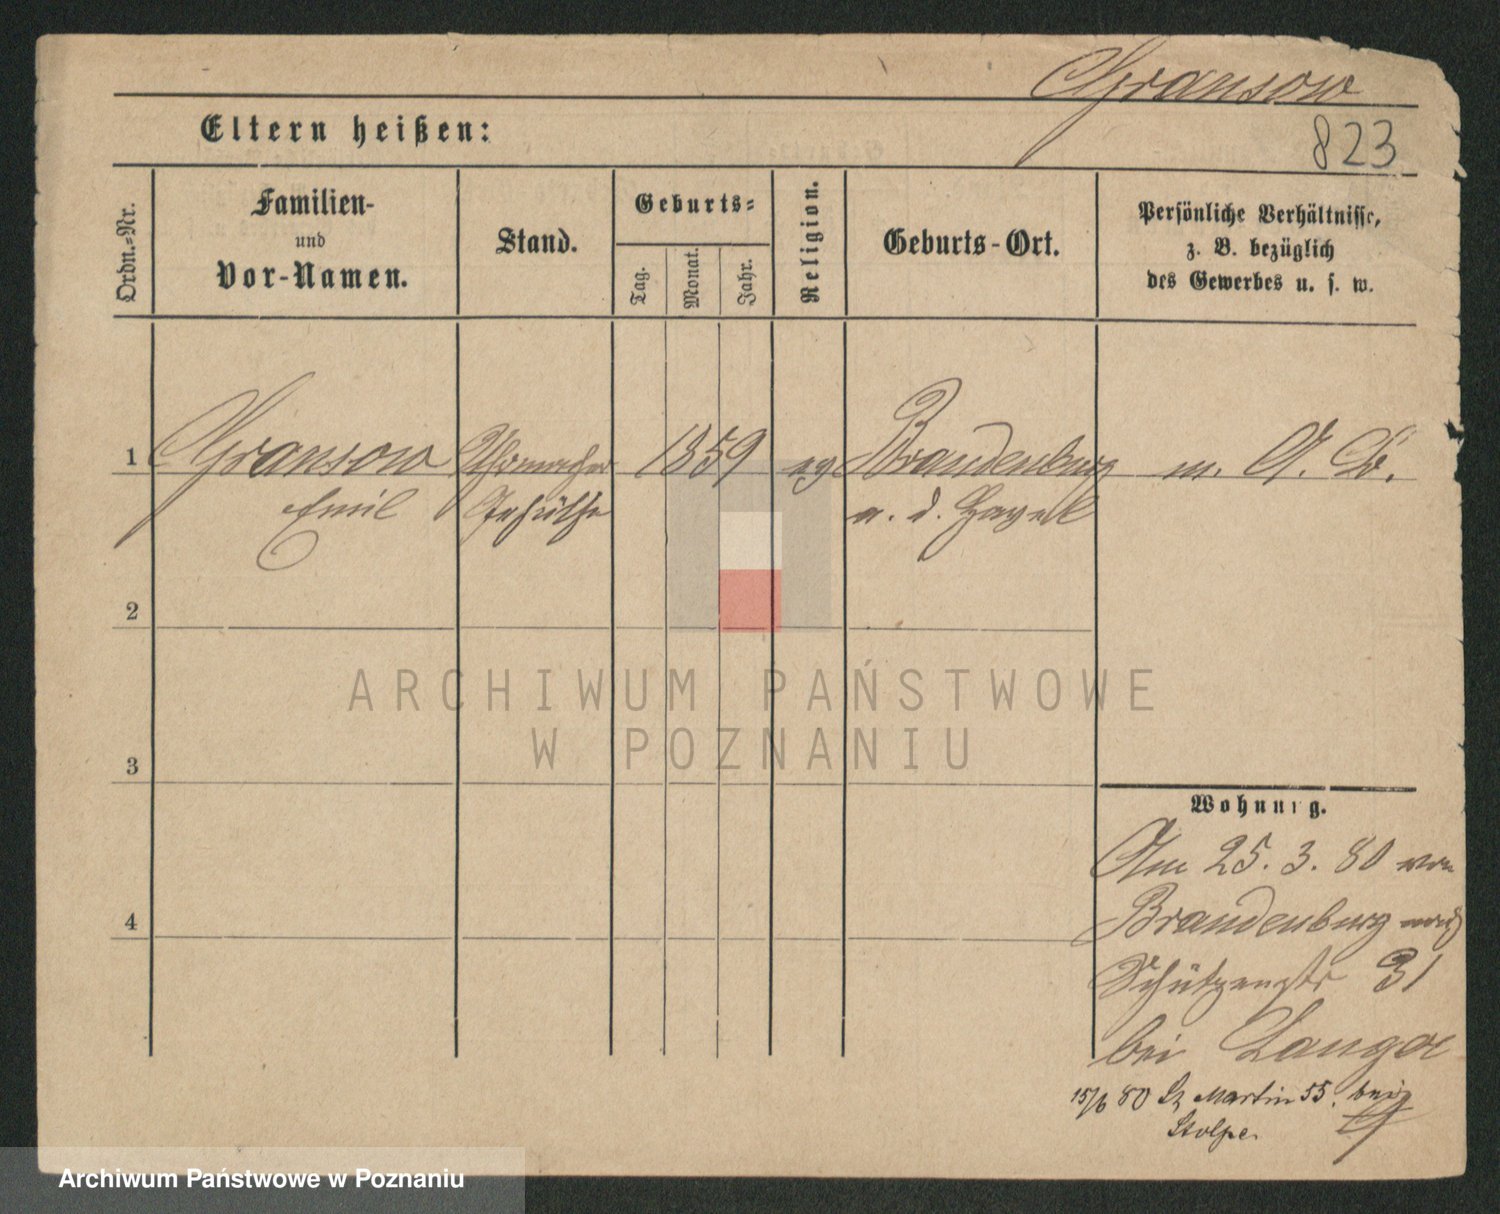 Gransow
823
Eltern heißen:
Ordn.-Nr.
Familien-
und
Vor-Namen.
Stand.
Geburts-
Tag.
Monat.
Jahr.
Religion.
Geburts-Ort.
Persönliche Verhältnisse,
z. B. bezüglich
des Gewerbes u. s. w.
1 Gransow Uhrmacher 1859 eg Brandenburg m. A. B.
Emil Gehülfe a. d. Havel
2
3
4
ARCHIWUM PAŃSTWOWE
W POZNANIU
Wohnung.
Am 25. 3. 80 von
Brandenburg nach
Schützenstr 31
bei Lange
15/6 80 St Martin 55. bei
Stolpe.
Archiwum Państwowe w Poznaniu